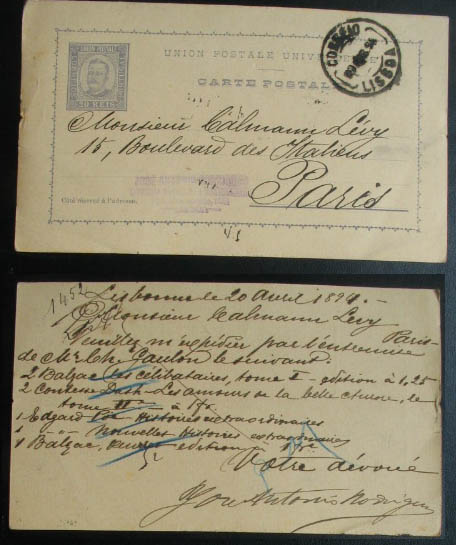 UNION POSTALE UNIVERSELLE
CARTE POSTALE
CORREIO
LISBOA
Monsieur Calmann Lévy
15, Boulevard des Italiens
Paris
Côté réservé à l'adresse.
1452
Lisbonne le 20 Avril 1894.-
Monsieur Calmann Lévy
Paris
Veuillez m'expédier par l'entremise
de Mr. Ch. le suivant.
2 Balzac les célibataires, tome I - édition à 1,25
2 Les amours de la belle le
tome II - à
1 Edgard Poe Histoires extraordinaires
1 " Nouvelles Histoires extraordinaires
1 Balzac, édition à
Votre dévoué
José Antonio Rodrigues